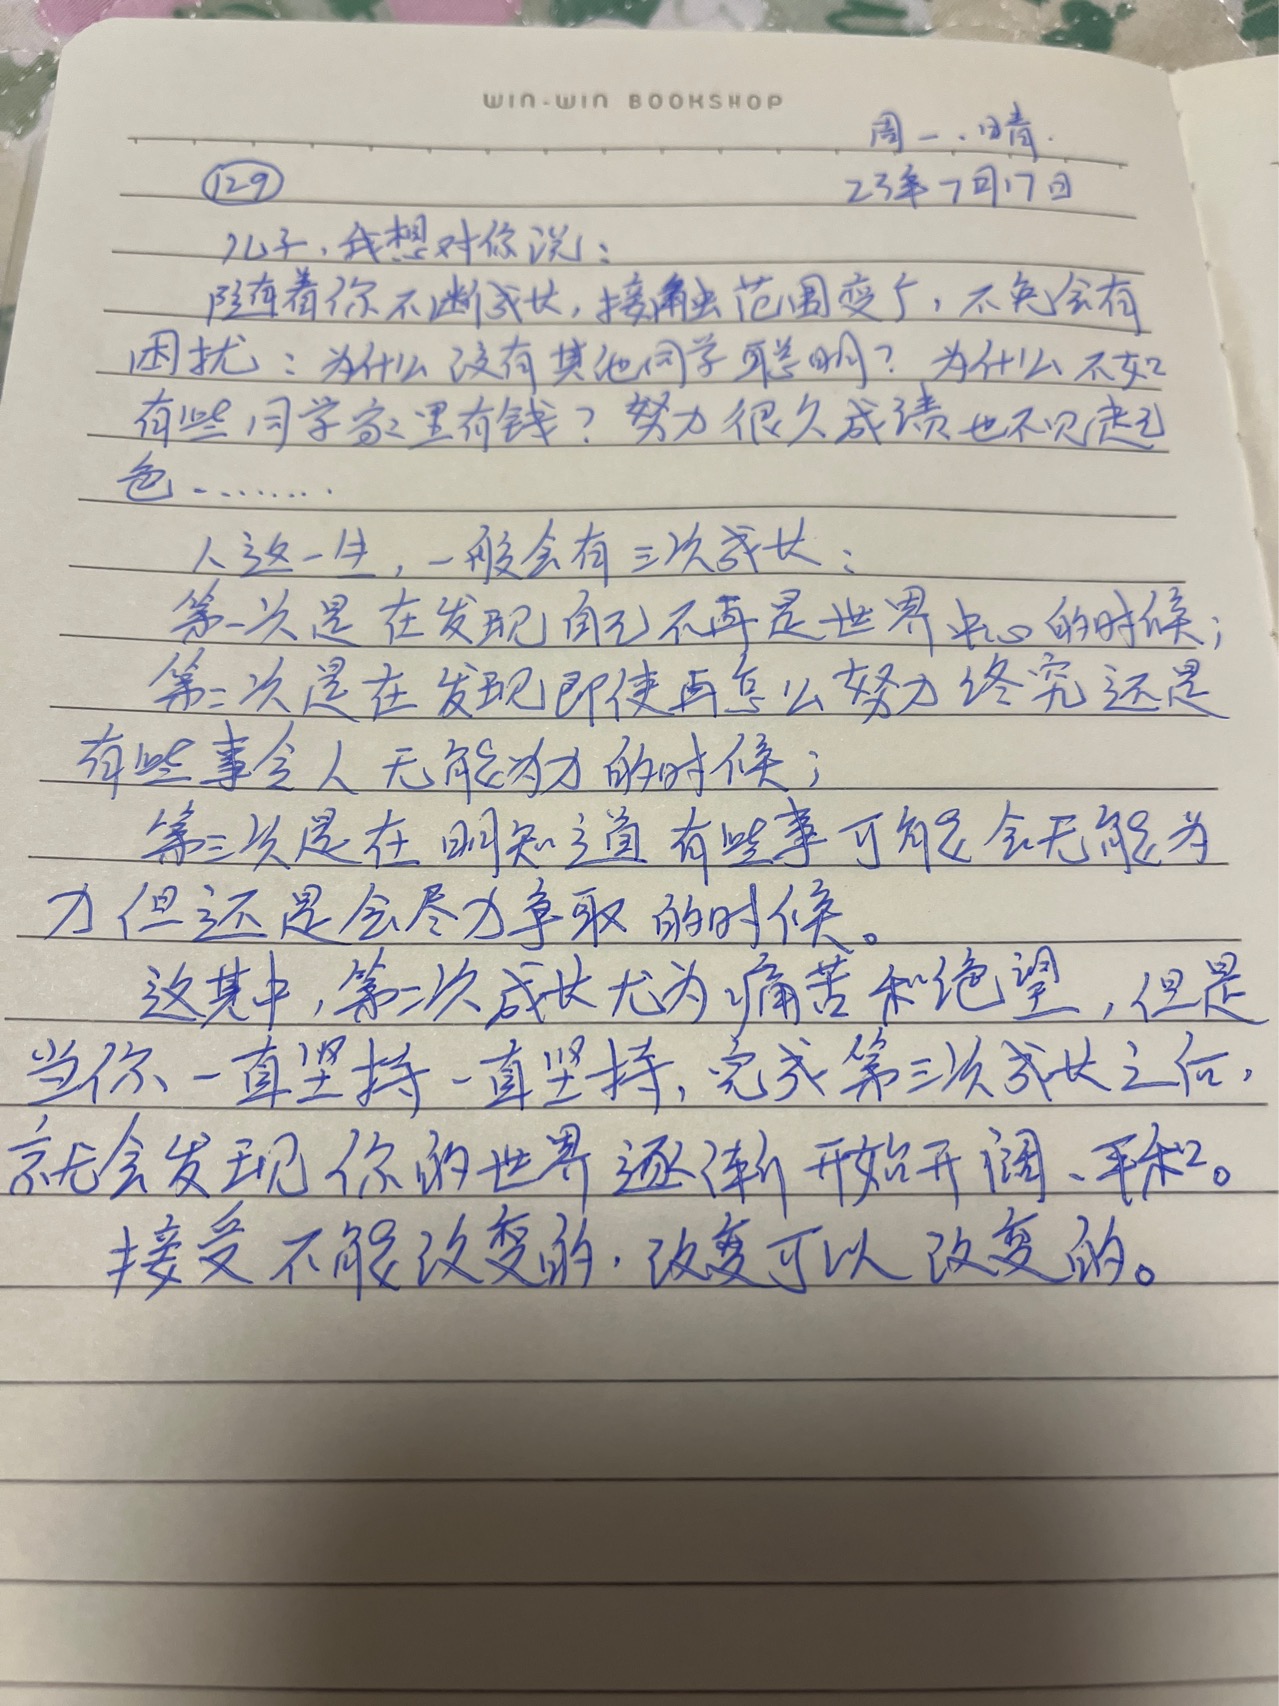 WIN-WIN BOOKSHOP
周一.晴.
129
23年7月17日
儿子,我想对你说:
随着你不断成长,接触范围变广,不免会有
困扰:为什么没有其他同学聪明?为什么不如
有些同学家里有钱?努力很久成绩也不见起
色........
人这一生,一般会有三次成长:
第一次是在发现自己不再是世界中心的时候;
第二次是在发现即使再怎么努力终究还是
有些事令人无能为力的时候;
第三次是在明知道有些事可能会无能为
力但还是会尽力争取的时候。
这其中,第二次成长尤为痛苦和绝望,但是
当你一直坚持一直坚持,完成第三次成长之后,
就会发现你的世界逐渐开始开阔、平和。
接受不能改变的.改变可以改变的。